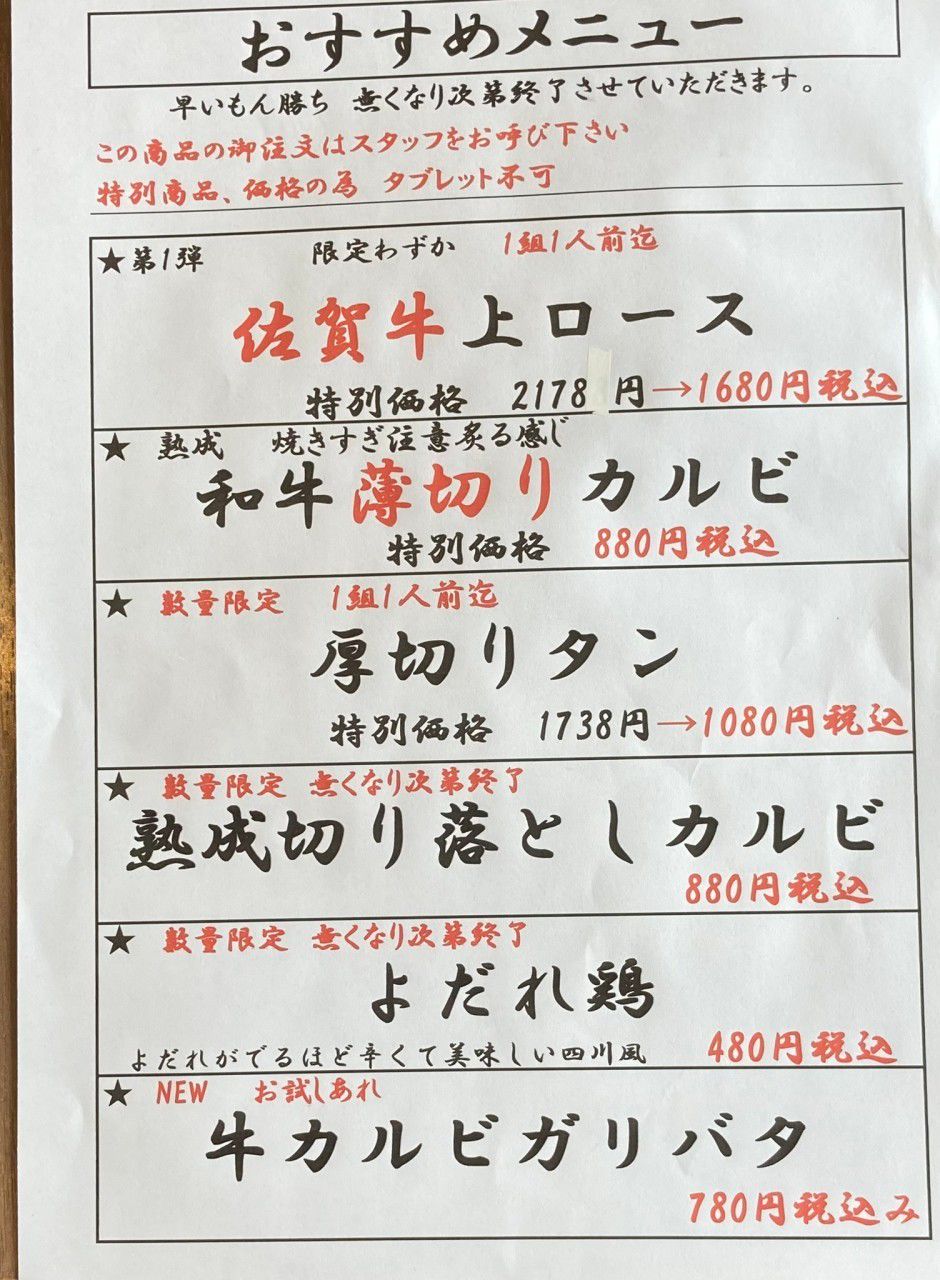 おすすめメニュー
早いもん勝ち 無くなり次第終了させていただきます。
この商品の御注文はスタッフをお呼び下さい
特別商品、価格の為 タブレット不可
★第1弾 限定わずか 1組1人前迄
佐賀牛上ロース
特別価格 2178円→1680円税込
★ 熟成 焼きすぎ注意炙る感じ
和牛薄切りカルビ
特別価格 880円税込
★ 数量限定 1組1人前迄
厚切りタン
特別価格 1738円→1080円税込
★ 数量限定 無くなり次第終了
熟成切り落としカルビ
880円税込
★ 数量限定 無くなり次第終了
よだれ鶏
よだれがでるほど辛くて美味しい四川風 480円税込
★ NEW お試しあれ
牛カルビガリバタ
780円税込み